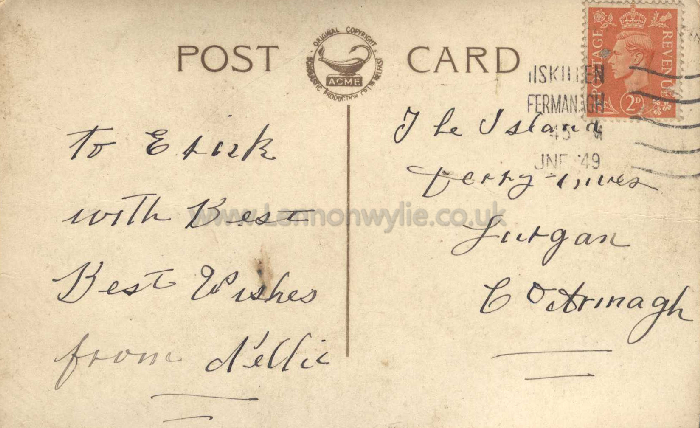 POST CARD
ORIGINAL COPYRIGHT
ACME
POSTAGE REVENUE
2D
FERMANAGH
45 M
JNE '49
To
with Best
Best Wishes
from Nellie
The Island
Derry-inver
Lurgan
Co Armagh
www.Lennonwylie.co.uk